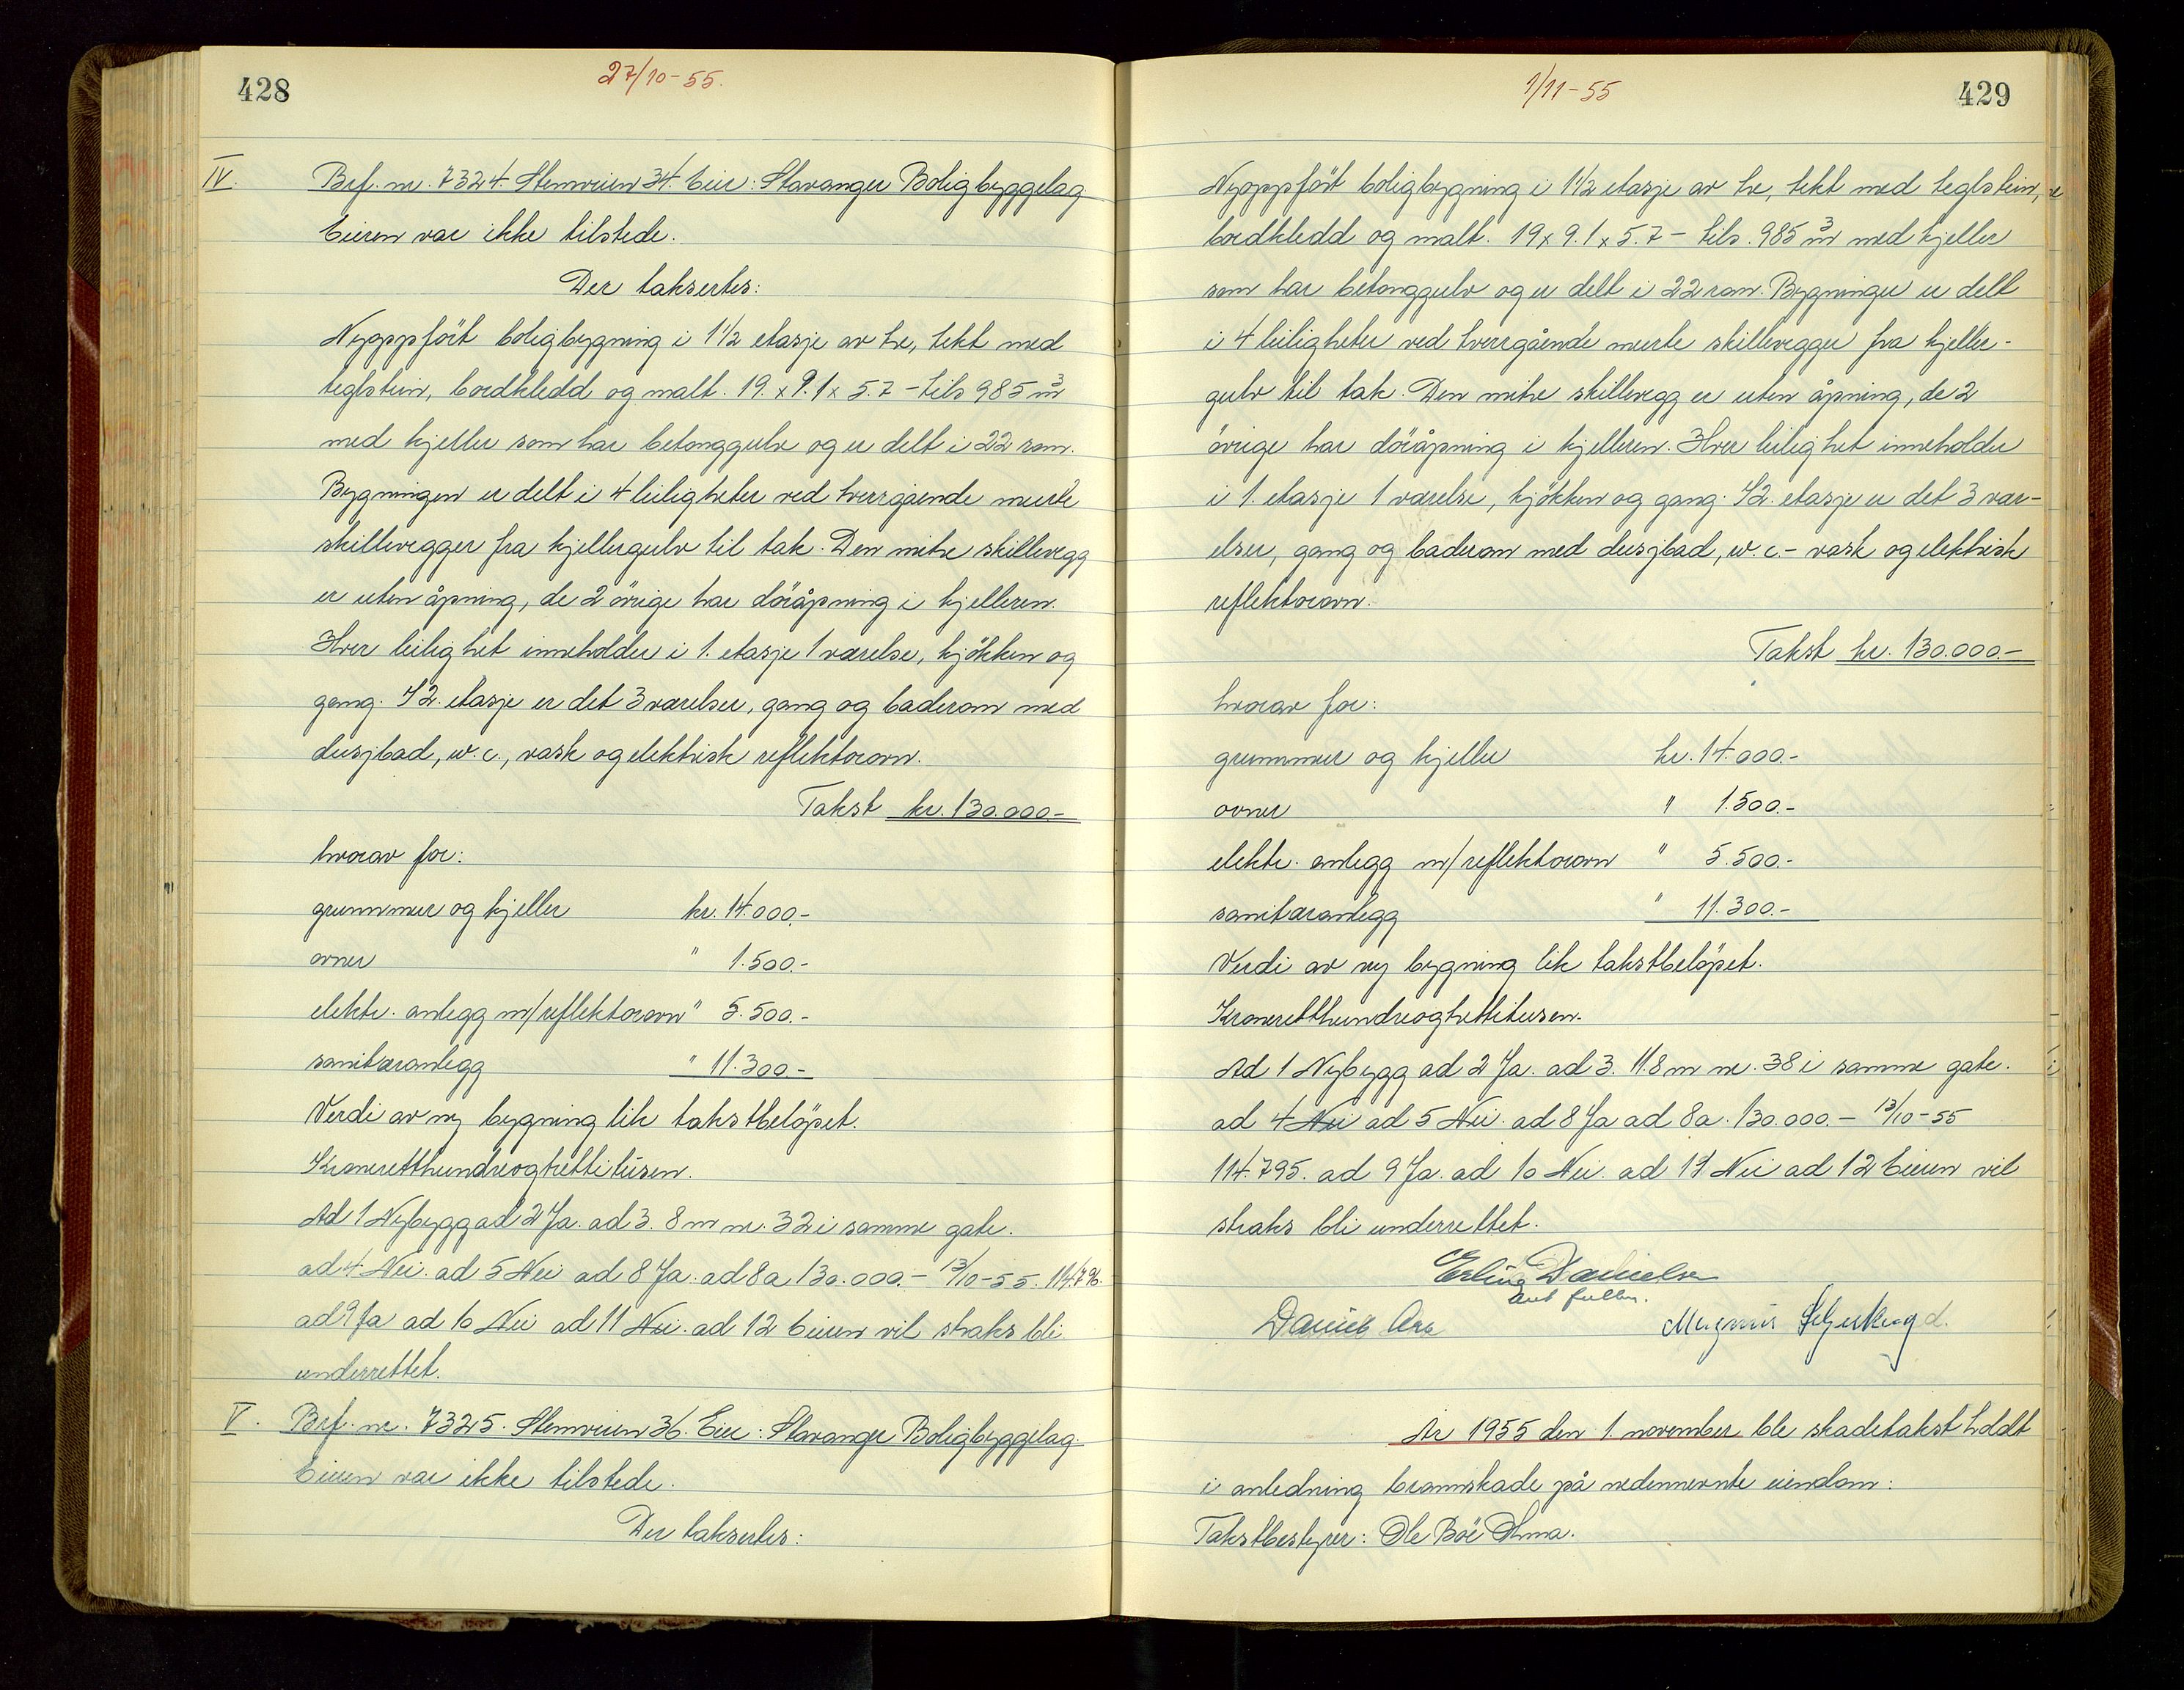 428
27/10-55.
IV. Brf. nr. 7324. Stemveien 34. Eier: Stavanger Boligbyggelag
Eieren var ikke tilstede.
Der takseres:
Nyoppfört boligbygning i 1 1/2 etasje av tre, tekt med
teglstein, bordkledd og malt. 19. x 9.1 x 5.7 - tils 985 m³
med kjeller som har betonggulv og er delt i 22 rom.
Bygningen er delt i 4 leiligheter ved tverrgående murte
skillevegger fra kjellergulv til tak. Den mitre skillevegg
er uten åpning, de 2 övrige har döråpning i kjelleren.
Hver leilighet inneholder i 1. etasje 1 værelse, kjökken og
gang. I 2. etasje er det 3 værelser, gang og baderom med
dusjbad, w.c., vask og elektrisk reflektorovn.
Takst kr. 130.000.-
hvorav for:
grunnmur og kjeller kr. 14.000.-
ovner " 1.500.-
elektr. anlegg m/reflektorovn " 5.500.-
sanitæranlegg " 11.300-
Verdi av ny bygning lik takstbelöpet.
Kroneretthundreogtrettitusen.
Ad 1 Nybygg ad 2 Ja. ad 3. 8 m nr. 32 i samme gate.
ad 4 Nei. ad 5 Nei ad 8 Ja. ad 8a 130.000.- 13/10-55. 114.796.
ad 9 Ja ad 10 Nei ad 11 Nei. ad 12 Eieren vil straks bli
underrettet.
V. Brf. nr. 7325. Stemveien 36. Eier: Stavanger Boligbyggelag.
Eieren var ikke tilstede.
Der takseres:
1/11-55
429
Nyoppfört boligbygning i 1 1/2 etasje av tre, tekt med teglstein,
bordkledd og malt. 19 x 9.1 x 5.7 - tils. 985 m³ med kjeller
som har betonggulv og er delt i 22 rom. Bygninger er delt
i 4 leiligheter ved tverrgående murte skillevegger fra kjeller-
gulv til tak. Den mitre skillevegg er uten åpning, de 2
övrige har döråpning i kjelleren. Hver leilighet inneholder
i 1. etasje 1 værelse, kjökken og gang. I 2. etasje er det 3 vær-
elser, gang og baderom med dusjbad, w.c.- vask og elektrisk
reflektorovn.
Takst kr. 130.000.-
hvorav for:
grunnmur og kjeller kr. 14.000.-
ovner " 1.500.-
elektr. anlegg m/reflektorovn " 5.500.-
sanitæranlegg " 11.300.-
Verdi av ny bygning lik takstbelöpet.
Kroneretthundreogtrettitusen.
Ad 1 Nybygg ad 2 Ja. ad 3. 11.8 m nr. 38 i samme gate.
ad 4 Nei ad 5 Nei. ad 8 Ja ad 8a. 130.000.- 13/10-55
114.795. ad 9 Ja. ad 10 Nei. ad 11 Nei ad 12 Eieren vil
straks bli underrettet.
Erling Danielsen
Daniel Magnus
År 1955 den 1. november ble skadetakst holdt
i anledning brannskade på nedennevnte eiendom:
Takstbestyrer: Ole Böe